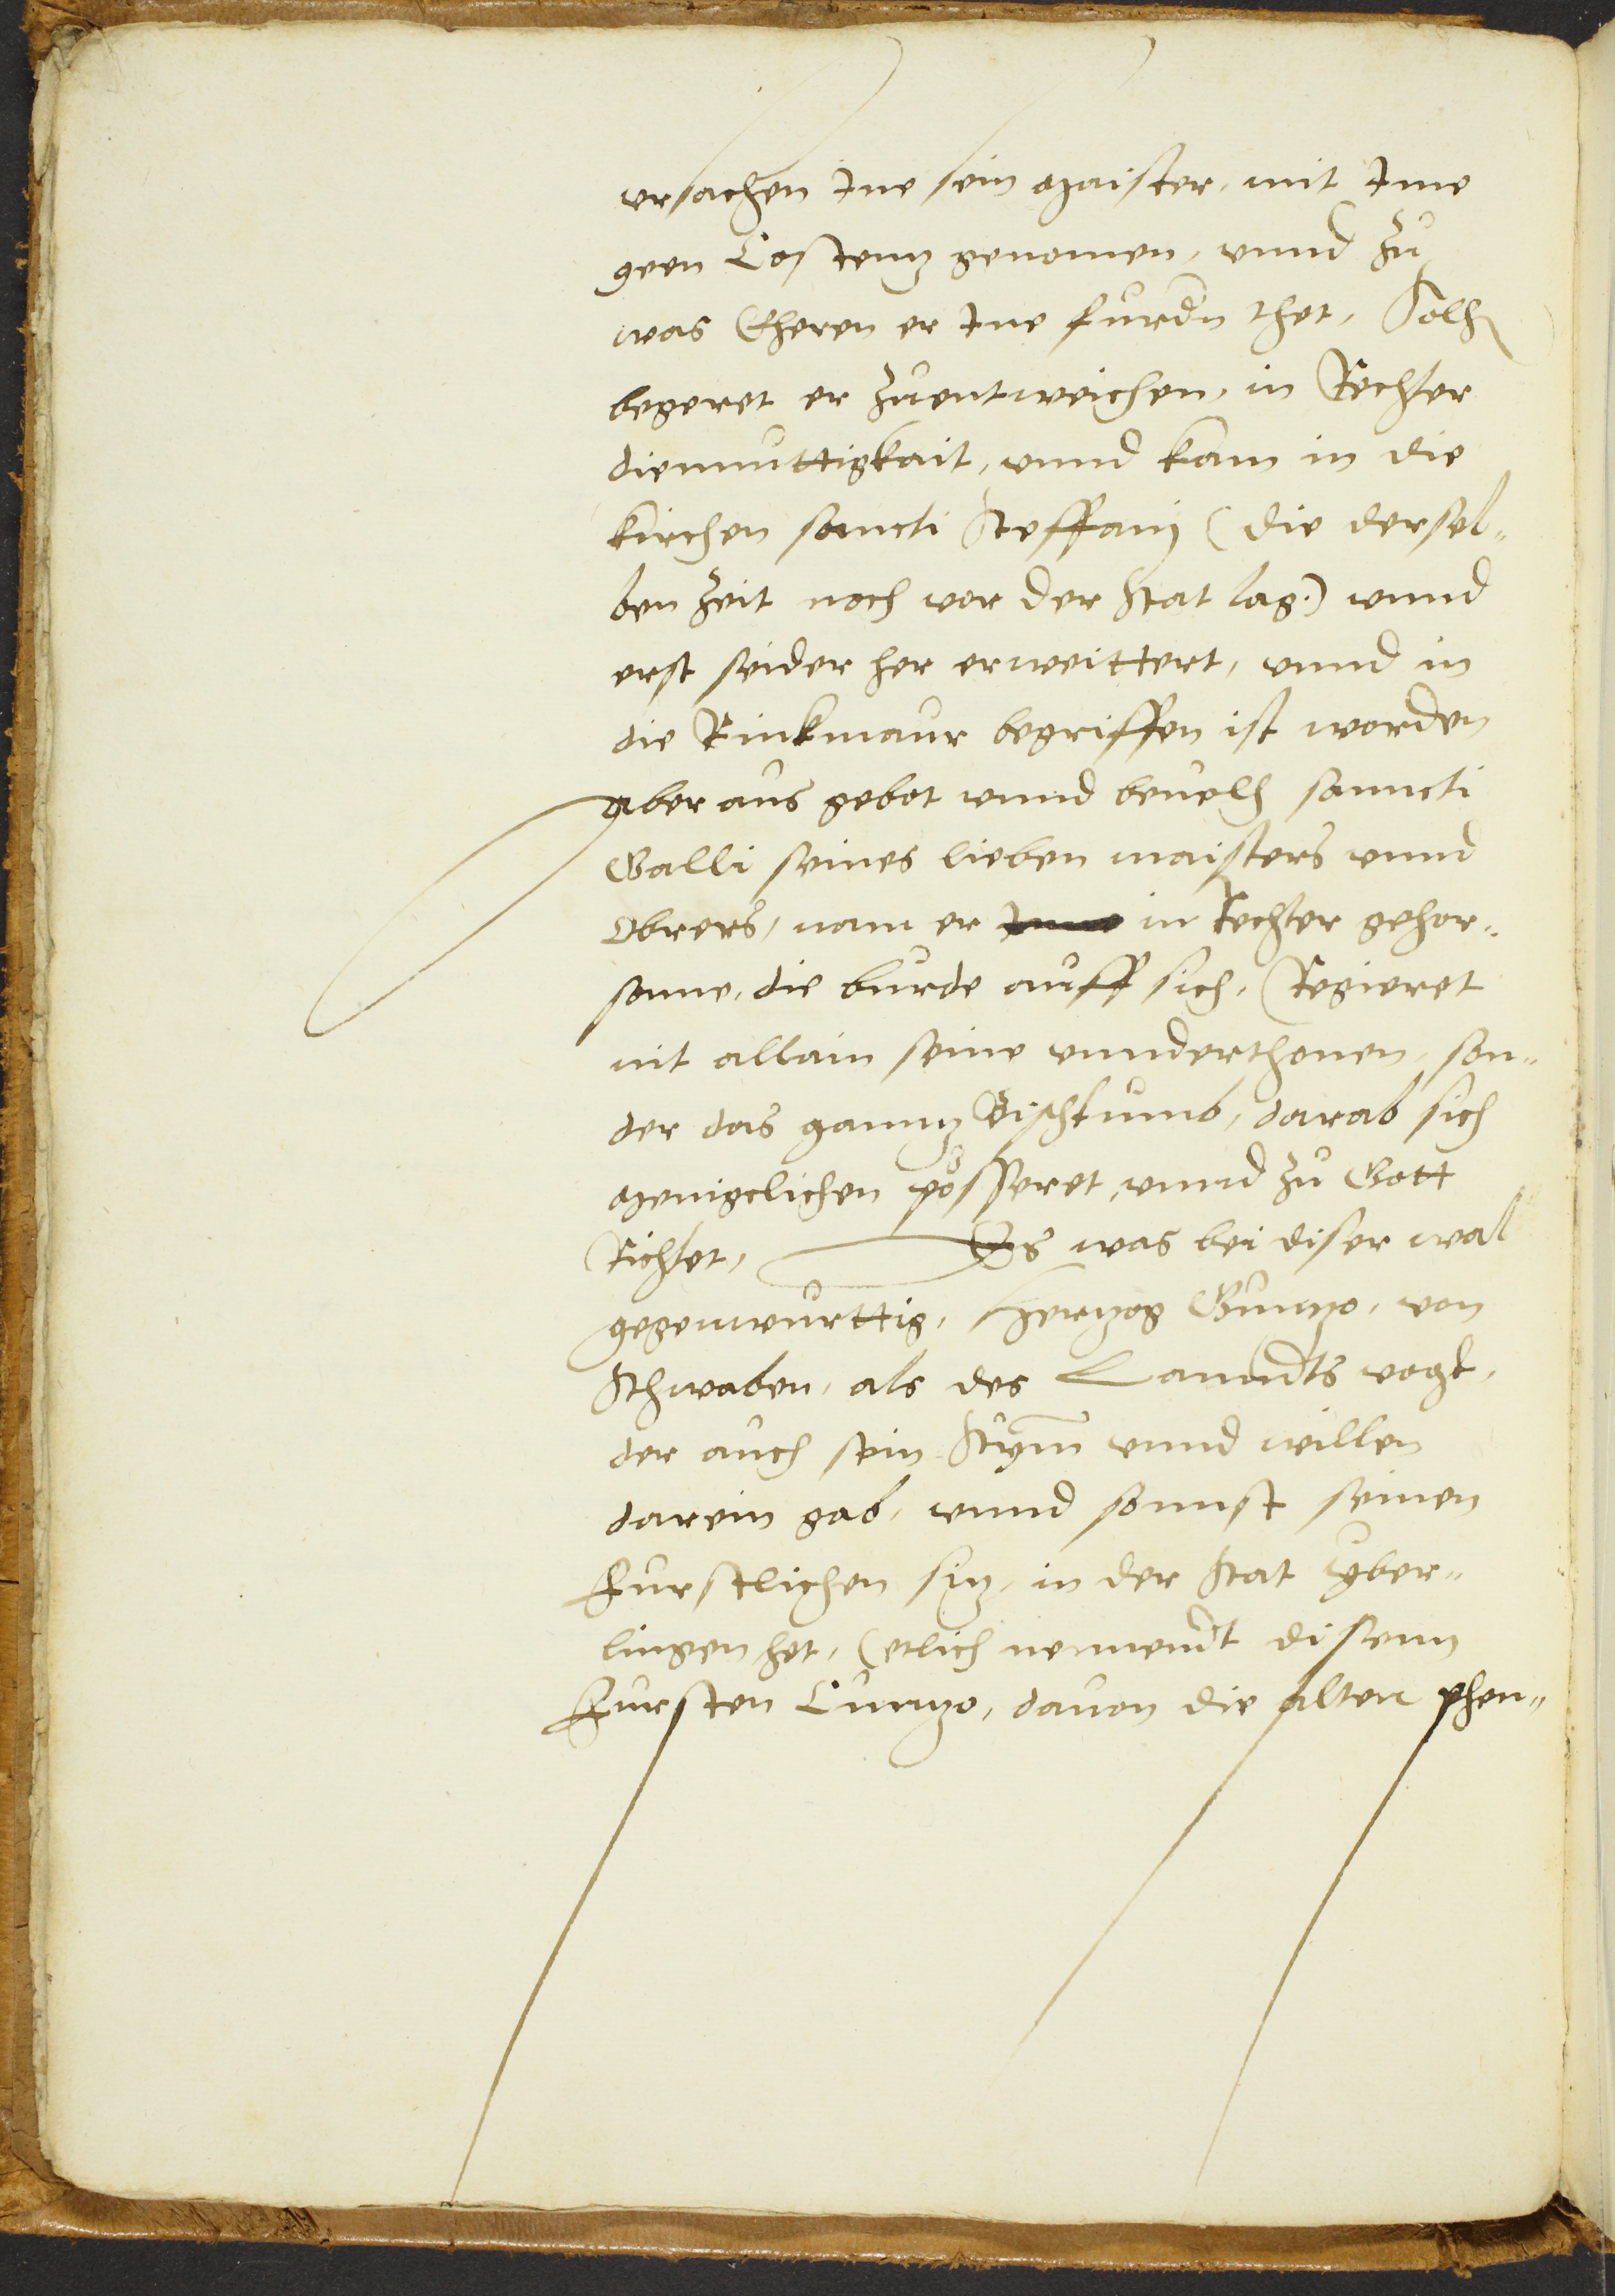 vrsachen Ine sein Maister, mit Ime
geen Costenz genomen, vnnd zu
was Eheren er Ine furdn thet, Solhs
begeret er zuentweichen, in Rechter
diemuttigkait, vnnd kam in die
kirchen sancti Steffanj (die dersel„
ben zeit noch vor der Stat lag.) vnnd
erst seider her erweittert, vnnd in
die Rinkmaur begriffen ist worden
Aber aus gebot vnnd beuelh sanncti
Galli seines lieben maisters vnnd
Obrers, nam er in Rechter gehor„
same, die burde auff sich, Regieret
nit allain seine vnnderthonen, son„
der das gannz Bisthumb, darab sich
Menigclichen pösseret, vnnd zu Gott
Richtet, Es was bei diser wal
gegenwurttig, Herzog Gunzo, von
Schwaben, als des Lanndts vogt,
der auch sein Stym̄ vnnd willen
darein gab, vnnd sonnst seinen
Furstlichen siz, in der Stat Yber„
lingen het, (etlich nennendt disenn
Fursten Cunzo, dauon die alten phen„